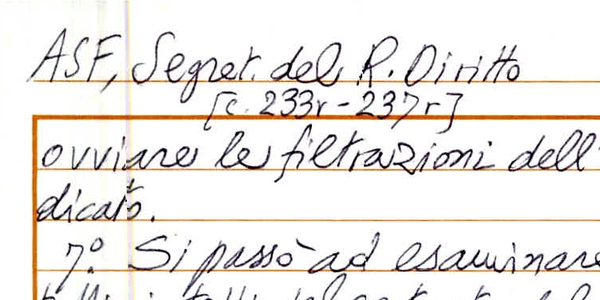 ASF, Segret. del R. Diritto
[c. 233r - 237r]
ovviare le filtrazioni dell'
dicato.
7º. Si passò ad esaminare